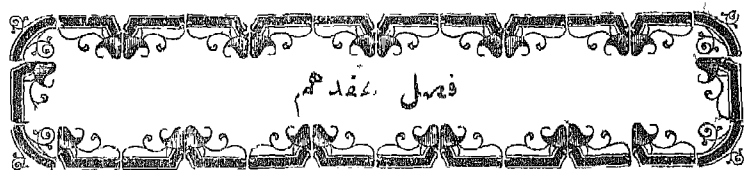 فصل هفدهم